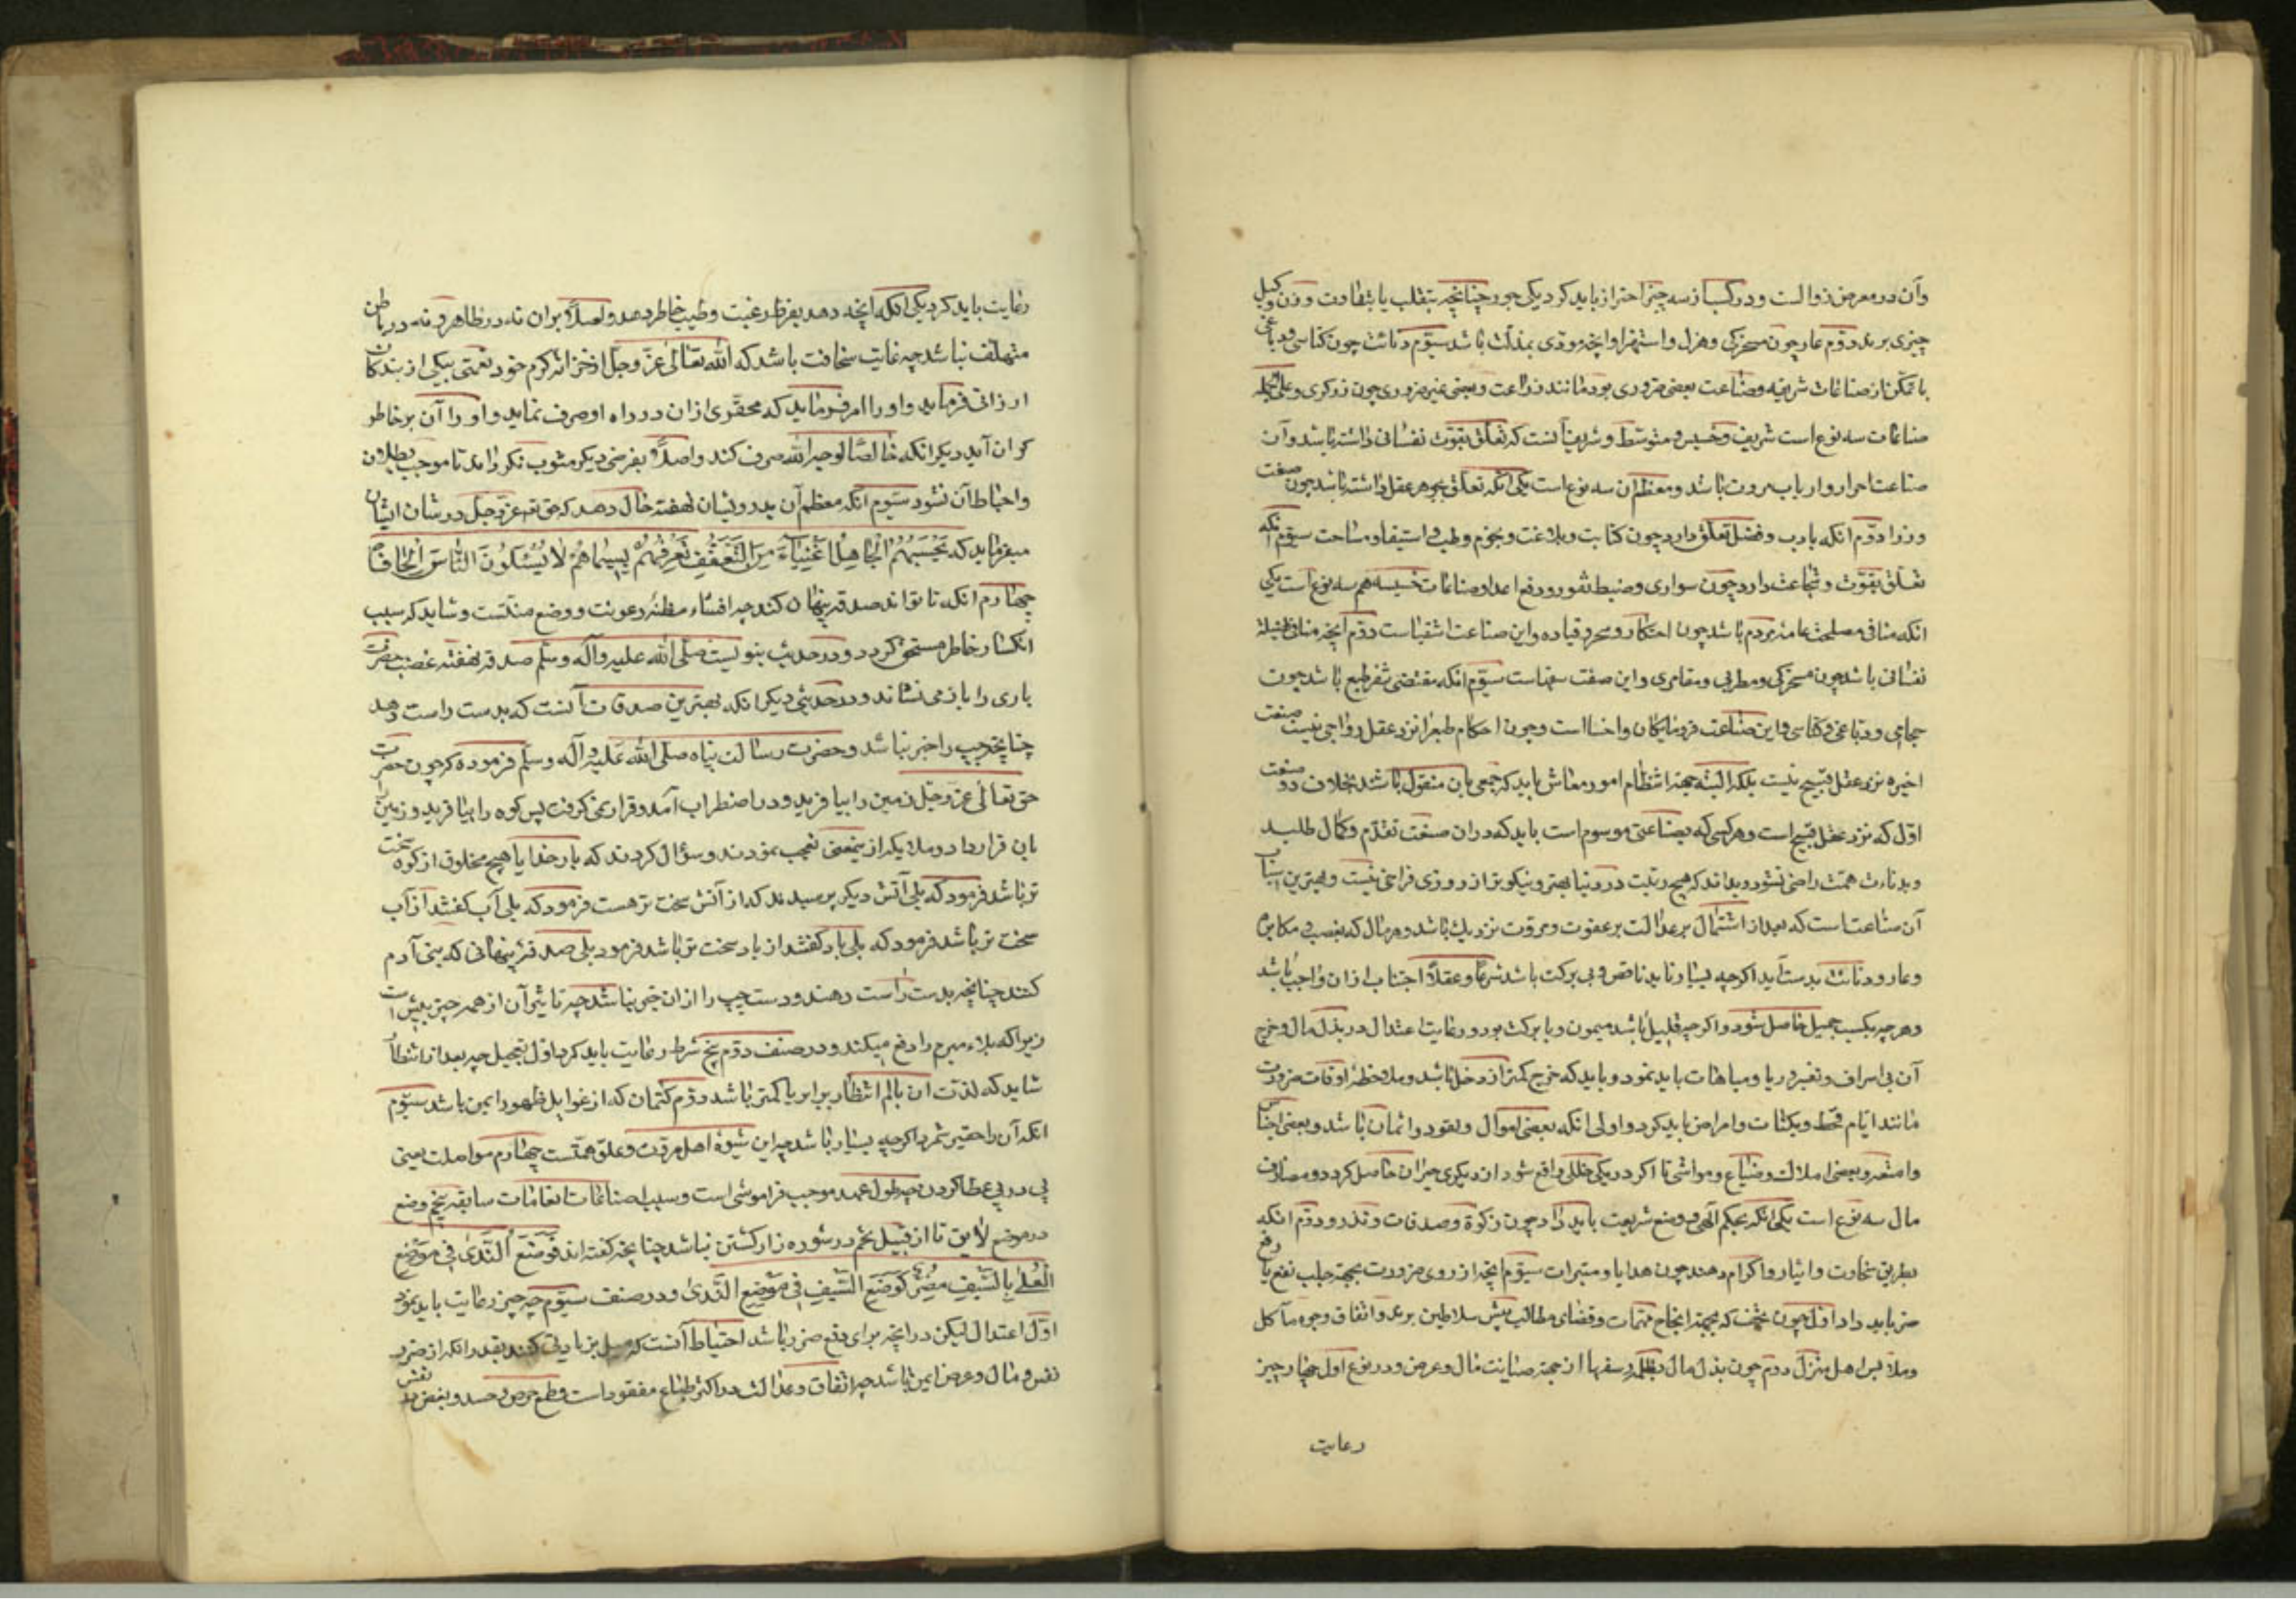 وآن در معرض زوالست و در کسب از سه چیز احتراز باید کرد یکی جور چنانچه بتقلب یا بتفاوت وزن و کیل
چیزی برند دوّم عار چون مسخرکی و هزل و استهزا و آنچه مؤدی بمذلت باشد سیوّم دنائت چون کناسی و دباغی
با تمکّن از صناعات شریفه و صناعت بعضی ضروری بود مانند زراعت و بعضی غیر ضروری چون زرکری و علی الجمله
صناعات سه نوع است شریف و خسیس و متوسّط و شریف آنست که تعلّق بقوّت نفسانی داشته باشد و آن
صناعت احرار و ارباب مروت باشد و معظم آن سه نوع است یکی آنکه تعلّق بجوهر عقل داشته باشد چون صنعت
وزرا دوّم آنکه بادب و فضل تعلّق دارد چون کتابت و بلاغت و نجوم و طب و استیفا و مساحت سیوّم آنکه
تعلّق بقوّت و شجاعت دارد چون سواری و ضبط ثغور و دفع اعدا و صناعات خسیسه هم سه نوع است یکی
آنکه منافی مصلحت عامهٔ مردم باشد چون احتکار و سحر و قیاده و این صناعت اشقیاست دوّم آنچه منافی فضیلة
نفسانی باشد چون مسخرکی و مطربی و مقامری و این صفت سفهاست سیوّم آنکه مقتضی تنفر طبع باشد چون
حجامی و دباغی و کناسی و این صناعت فرومایکان و اخساست و چون احکام طبع را نزد عقل رواجی نیست صنعت
اخیره نزد عقل قبیح نیست بلکه البته جهة انتظام امور معاش باید که جمعی بآن مشغول باشند بخلاف دو صنعت
اوّل که نزد عقل قبیح است و هر کسی که بصناعتی موسوم است باید که در آن صنعت تقدّم و کمال طلبد
و بدنائت همّت راضی نشود و بداند که هیچ زینت در دنیا بهتر و نیکوتر از روزی فراخ نیست و بهترین اسباب
آن صناعتست که بعد از اشتمال بر عدالت بر عفّت و مروّت نزدیک باشد و هر مال که بغصب و مکابره
و عار و دنائت بدست آید اکرچه بسیار نماید ناقص و بی برکت باشد شرعاً و عقلاً اجتناب از آن واجب باشد
و هر چه بکسب جمیل حاصل شود و اکرچه قلیل باشد میمون و با برکت بود و رعایت اعتدال در بذل مال و خرج
آن بی اسراف و تقتیر و ریا و مباهات باید نمود و باید که خرج کمتر از دخل باشد و ملاحظهٔ اوقات ضرورت
مانند ایّام قحط و نکبات و امراض باید کرد و اولی آنکه بعضی اموال و نقود و اثمان باشد و بعضی اجناس
و امتعه و بعضی املاک و ضیاع و مواشی تا اکر در یکی خللی واقع شود از آن دیکری جبران حاصل کردد و مصارف
مال سه نوع است یکی آنکه بحکم الهی و وضع شریعت باید داد چون زکوة و صدقات و نذر و دوّم آنکه
بطریق سخاوت و ایثار و اکرام دهند چون هدایا و مبرات سیوّم آنچه از روی ضرورت بجهة جلب نفع یا دفع
ضرر باید داد اوّل چون تحف که بجهة انجاح مهمّات و قضای مطالب پیش سلاطین برند و انفاق وجوه مآکل
و ملابس اهل منزل دوّم چون بذل مال بظلمه و سفها از جهة صیانت مال و عرض و در نوع اول چهار چیز
رعایت
رعایت باید کرد یکی آنکه آنچه دهد بفرط رغبت و طیب خاطر دهد و اصلاً بر آن نه در ظاهر و نه در باطن
متهلّف نباشد چه غایت سخافت باشد که الله تعالی عزّ وجلّ از خزانهٔ کرم خود نعمتی بیکی از بندکان
ارزانی فرماید و او را امر فرماید که محقّری از آن در راه او صرف نماید و او را آن بر خاطر
کران آید دیکر آنکه خالصاً لوجه الله صرف کند و اصلاً بغرضی دیکر مشوب نکرداند تا موجب بطلان
و احباط آن نشود سیوّم آنکه معظم آن بدرویشان نهفته حال دهد که حق تعـ عزّ وجل در شان ایشان
میفرماید که یَحْسَبُهُمُ الْجَاهِلُ أَغْنِیَاءَ مِنَ التَّعَفُّفِ تَعْرِفُهُمْ بِسِیمَاهُمْ لَا یَسْئَلُونَ النَّاسَ إِلْحَافًا
چهارم آنکه تا تواند صدقه پنهان کند چه افشاء مظنهٔ رعونت و وضع منّتست و شاید که سبب
انکسار خاطر مستحق کردد و در حدیث نبویست صلّی الله علیه وآله وسلّم صدقه نهفته غضب حضرت
باری را باز می نشاند و در حدیثی دیکر آنکه بهترین صدقات آنست که بدست راست دهد
چنانچه چپ را خبر نباشد و حضرت رسالت پناه صلی الله علیه وآله وسلّم فرموده که چون حضرت
حق تعالی عزّ وجلّ زمین را بیافرید و در اضطراب آمد و قرار نمی کرفت پس کوه را بیافرید و زمین را
بآن قرار داد و ملایکه از یمعنی تعجب نمودند و سؤال کردند که بار خدایا هیچ مخلوق از کوه سخت
تر باشد فرمود که بلی آتش دیکر پرسیدند که از آتش سخت تر هست فرمود که بلی آب کفتند از آب
سخت تر باشد فرمود که بلی باد کفتند از باد سخت تر باشد فرمود بلی صدقهٔ پنهانی که بنی آدم
کنند چنانچه بدست راست دهند و دست چپ را از آن خبر نباشد چه تاثیر آن از همه چیز بیش است
زیرا که بلاء مبرم را دفع میکند و در صنف دوّم پنج شرط رعایت باید کرد اوّل تعجیل چه بعد از انتظار
شاید که لذت آن بالم انتظار برابر یا کمتر باشد دوّم کتمان که از غوایل ظهور ایمن باشد سیوّم
آنکه آن را حقیر شمرد اکرچه بسیار باشد چه این شیوهٔ اهل مروّت و علوّ همّتست چهارم مواصلت یعنی
پی در پی عطا کردن چه طول عهد موجب فراموشی است و سبب اضاعات انعامات سابقه پنجم وضع
در موضع لایق تا از قبیل تخم در شوره زار کشتن نباشد چنانچه کفته اند فَوَضْعُ النَّدَی فِی مَوْضِعِ
الْعُلَی بِالسَّیْفِ مُضِرٌّ کَوَضْعِ السَّیْفِ فِی مَوْضِعِ النَّدَی و در صنف سیوّم چه چیز رعایت باید نمود
اوّل اعتدال لیکن در آنچه برای دفع ضرر باشد احتیاط آنست که میل بزیادتی کنند بقدر آنکه از ضرر
نفس و مال و عرض ایمن باشد چه انفاق و عدالت در اکثر طباع مفقود است و طمع حرص و حسد و بغض در نفس